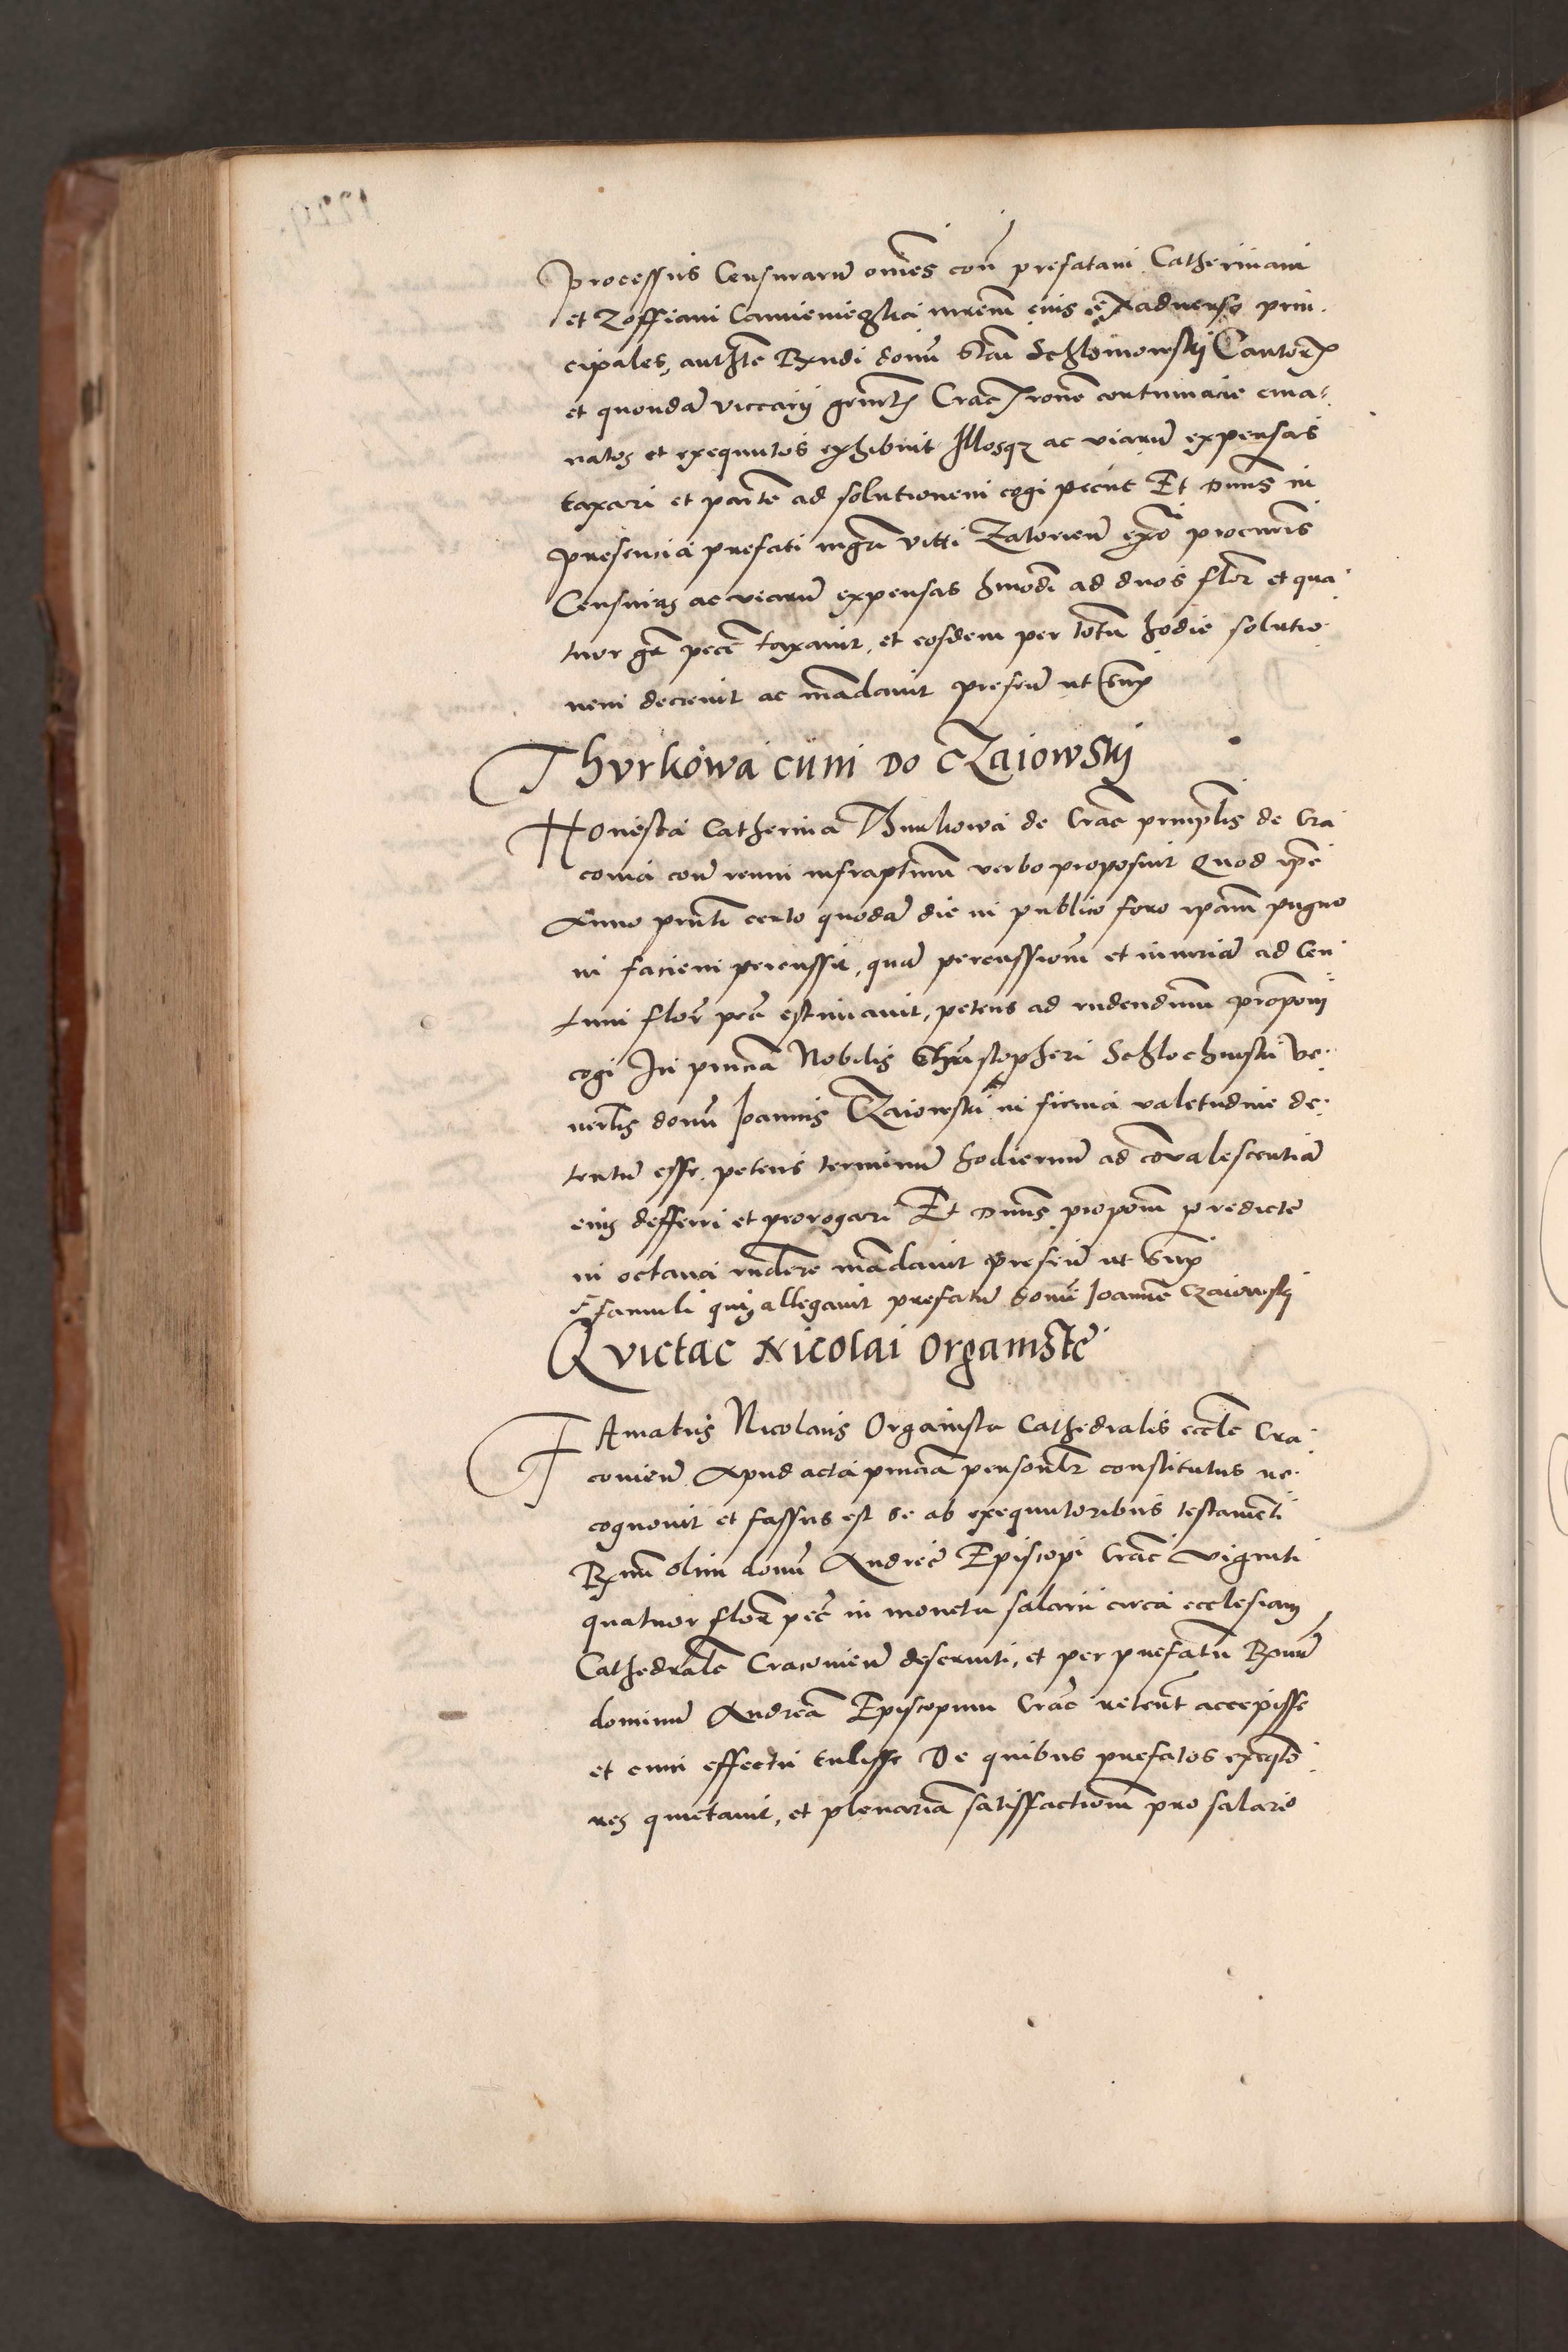 processus Censurarū omēs coñ prefatam Catherinam
et Zoffiam Camieniezska mrēm eius ex adverso prin
cipales, authte Rndi domī Stai Schlomowskÿ Cantoris
et quondā viccarÿ gnrlis Crac rone contumacie ema
natos et exequutos exhibuit Illosqz ac viarū expensas
taxari et partē ad solutionem cogi peciit Et Dnus in
presencia prefati mgri Vitti Zatorieñ exō procuris
Censuras ac viarū expensas hmōdi ad duos flor et qua
tuor gr pece taxavit, et eosdem per totū hodie solutio
nem decrevit ac mādavit preseñ ut sup
Thvrkowa cum Do cZaiowskÿ
Honesta Catherina Thurkowa de Crac prinplis de Cra
covia coñ reum infraptum verbo proposuit Quod ipe
Anno prnti certo quodā die in publico foro ipam pugno
in faciem percussit, quā percussionē et iniuriā ad Cen
tum flor pec estimavit, petens ad rndendum propom
cogi In prncia Nobilis Christopheri Schlochowski Ve
nerlis domī Joannis CZaiowski in firma valetudine de
tentū esse petens terminū hodiernū ad convalescentiā
eius defferri et prorogari Et Dnus propom predicte
in octava rndere mādavit preseñ ut sup
famuli qui allegavit prefatū domī Joannē Czaiowskÿ
Qvictac Nicolai Organiste
FAmatus Nicolaus Organista Cathedralis eccle Cra
covieñ Apud acta prncia personlr constitutus re
cognovit et fassus est se ab exequutoribus testamenti
Rmī olim domī Andreę Episcopi Crac viginti
quatuor flor pec in moneta salarii circa ecclesiam
Cathedralē Cracovieñ deserviti, et per prefatū Rmū
dominū Andreā Episcopum Crac retent accepisse
et cum effectu tulisse De quibus prefatos exeqto
res quietavit, et plenariā satisfactionē pro salario